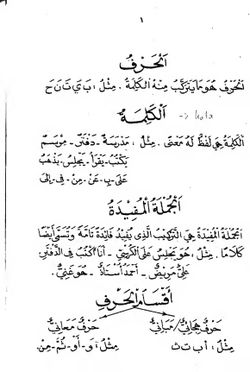 ١
اَلْحَرْفُ
اَلْحَرْفُ هُوَ مَا يَتَرَكَّبُ مِنْهُ الْكَلِمَةُ. مِثْلُ: بَ يَ تَ نَ حَ
اَلْكَلِمَةُ -> kata
اَلْكَلِمَةُ هِيَ لَفْظٌ لَهُ مَعْنًى. مِثْلُ: مَدْرَسَةٌ - دَفْتَرٌ - مِرْسَمٌ
يَكْتُبُ - يَقْرَأُ - يَجْلِسُ - يَذْهَبُ
عَلَى - بِ - عَنْ - مِنْ - فِى - إِلَى
اَلْجُمْلَةُ الْمُفِيْدَةُ
اَلْجُمْلَةُ الْمُفِيْدَةُ هِيَ التَّرْكِيْبُ الَّذِى يُفِيْدُ فَائِدَةً تَامَّةً وَتُسَمَّى أَيْضًا
كَلَامًا. مِثْلُ: هُوَ يَجْلِسُ عَلَى الْكُرْسِيِّ - أَنَا أَكْتُبُ فِى الدَّفْتَرِ
عَلِيٌّ مَرِيْضٌ - أَحْمَدُ أُسْتَاذٌ - هُوَ غَنِيٌّ.
أَقْسَامُ الْحَرْفِ
حَرْفُ هِجَائِيٍّ / مَبَانِيْ حَرْفُ مَعَانِيْ
مِثْلُ: أ ب ت ث مِثْلُ: وَ - أَوْ - ثُمَّ - مِنْ